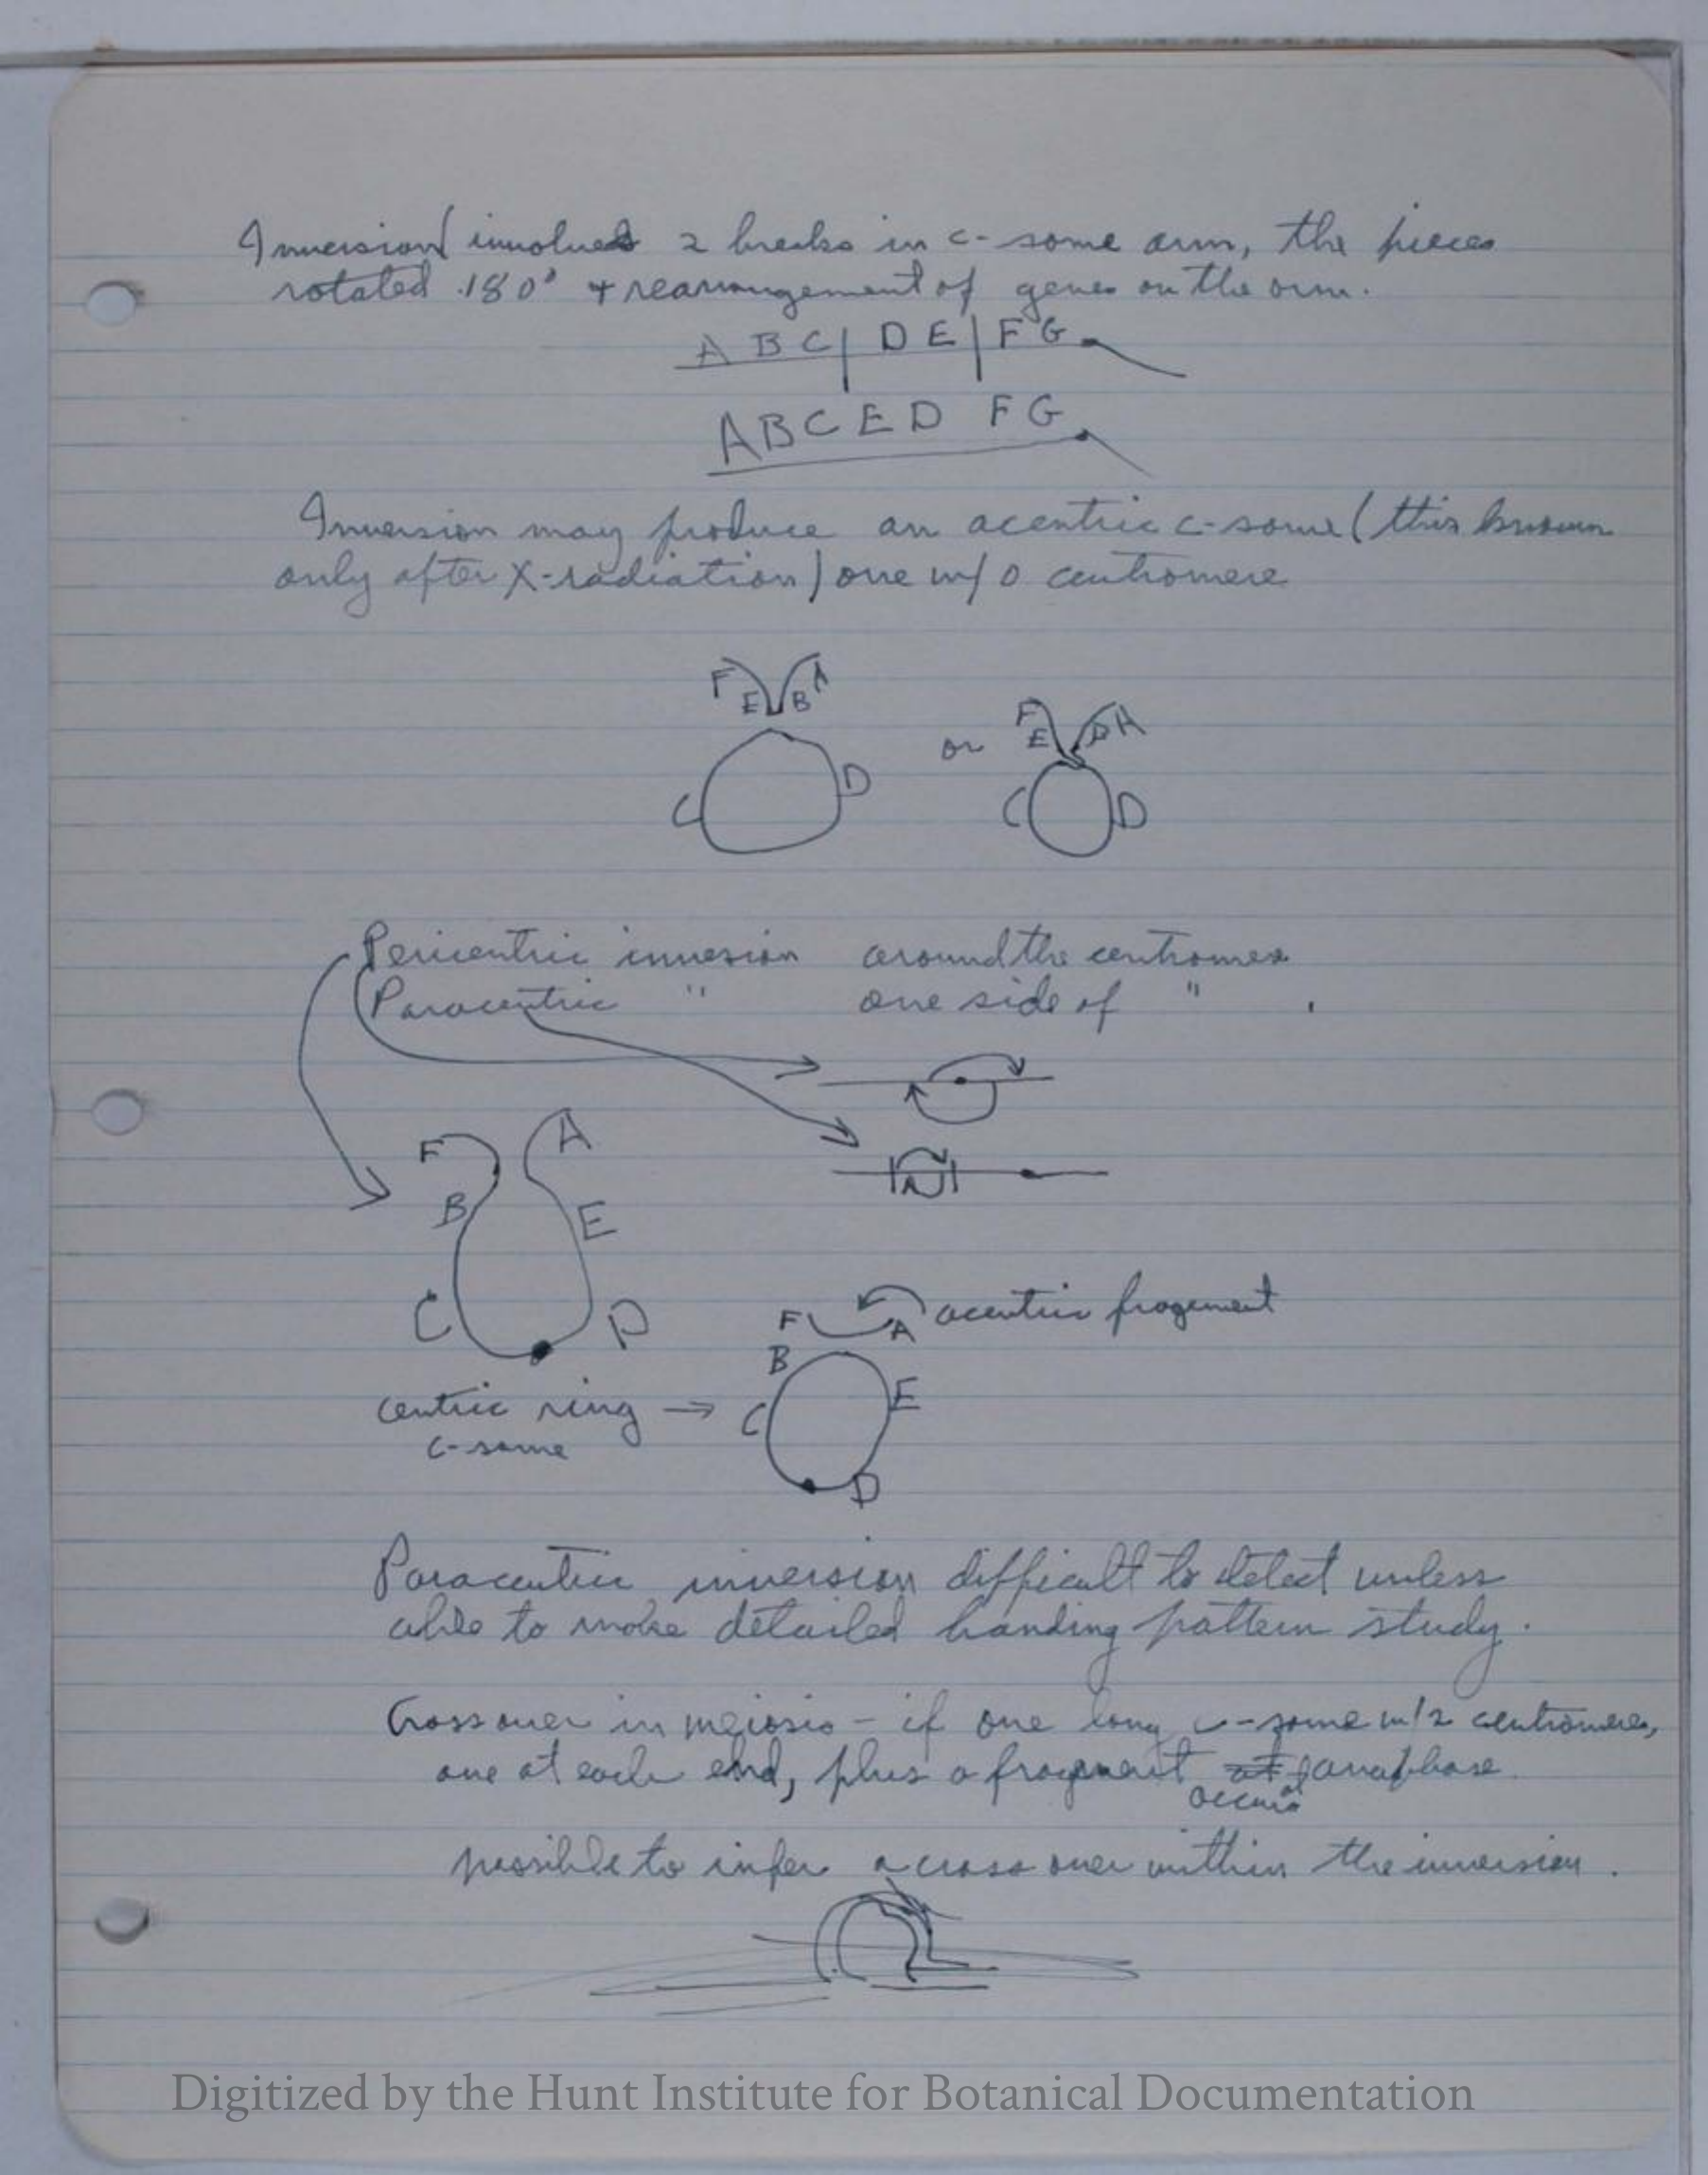 Inversion involves 2 breaks in c-some arm, the pieces
rotated 180° + rearrangement of genes on the arm.
A B C | D E | F G
A B C E D F G
Inversion may produce an acentric c-some (this known
only after X-radiation) one w/o centromere
F E B A
F E B A
or
C D
C D
Pericentric inversion around the centromere
Paracentric " one side of " .
F A
B E
C D
F A acentric fragement
B
centric ring → C E
c-some
D
Paracentric inversion difficult to detect unless
able to make detailed banding pattern study.
Crossover in meiosis - if one long c-some w/2 centromeres,
one at each end, plus a fragment at anaphase
occurs
possible to infer a cross over within the inversion.
Digitized by the Hunt Institute for Botanical Documentation